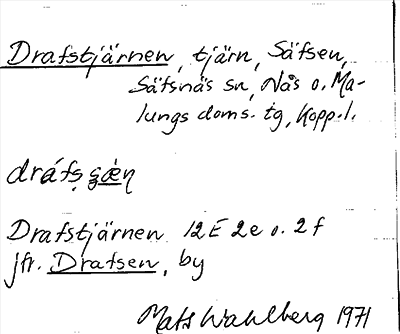 Drafstjärnen, tjärn, Säfsen,
Säfsnäs sn, Nås o. Ma-
lungs doms. tg, Kopp. l.
Drafstjärnen 12E 2e o. 2f
jfr. Drafsen, by
Mats Wahlberg 1971